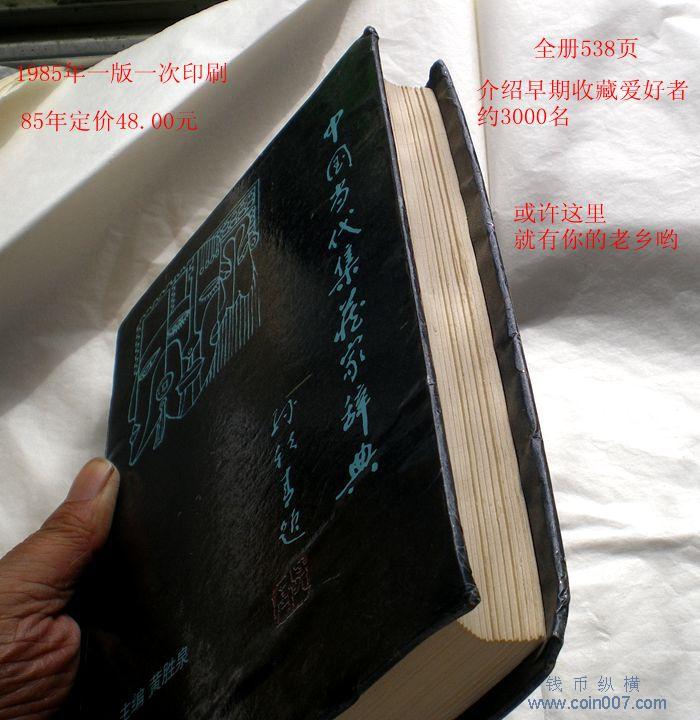 1985年一版一次印刷
85年定价48.00元
全册538页
介绍早期收藏爱好者
约3000名
或许这里
就有你的老乡哟
中国当代集藏家辞典
主编 黄胜泉
钱币纵横
www.coin007.com